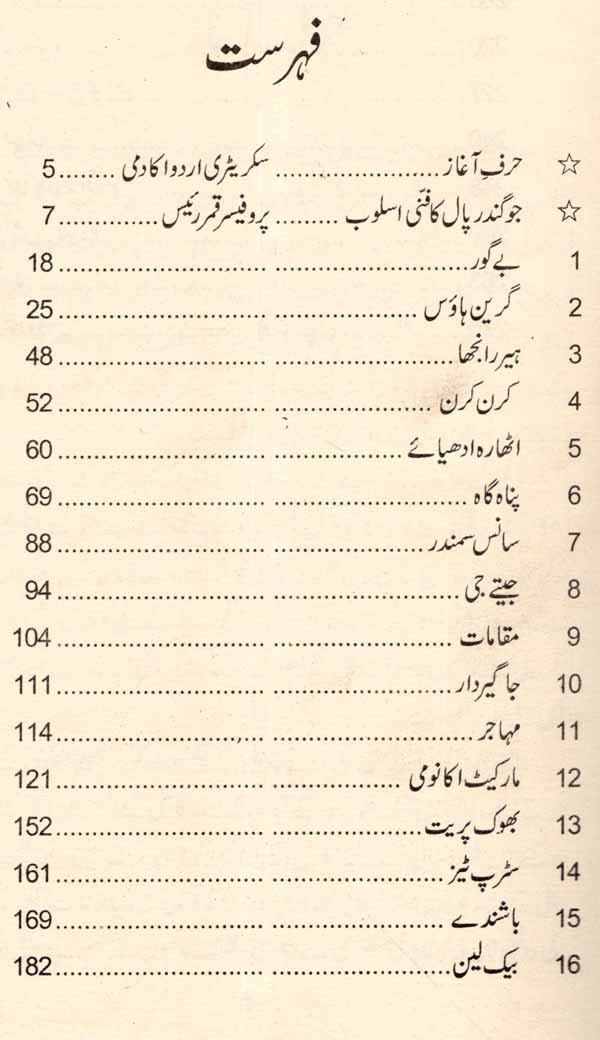 فہرست
☆ حرفِ آغاز ...................... سکریٹری اردو اکادمی ........ 5
☆ جوگندر پال کا فنّی اسلوب ......... پروفیسر قمر رئیس .............. 7
1 بے گور ................................................ 18
2 گرین ہاؤس ................................................ 25
3 ہیر رانجھا ................................................ 48
4 کرن کرن ................................................ 52
5 اٹھارہ ادھیائے ................................................ 60
6 پناہ گاہ ................................................ 69
7 سانس سمندر ................................................ 88
8 جیتے جی ................................................ 94
9 مقامات ................................................ 104
10 جاگیردار ................................................ 111
11 مہاجر ................................................ 114
12 مارکیٹ اکانومی ................................................ 121
13 بھوک پریت ................................................ 152
14 سٹرپ ٹیز ................................................ 161
15 باشندے ................................................ 169
16 بیک لین ................................................ 182